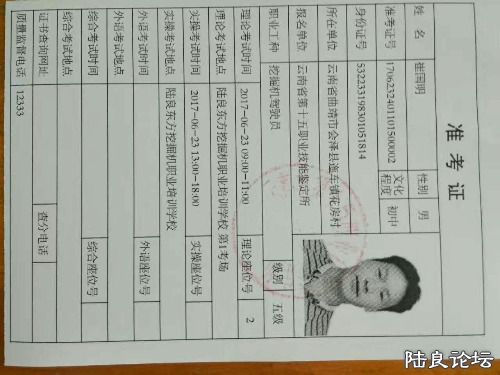 准考证
姓 名 崔国明 性别 男
准考证号 1706232401101500002 文化程度 初中
身份证号 532233198301051814
所在单位 云南省曲靖市会泽县迤车镇花房村
报名单位 云南省第十五职业技能鉴定所
职业工种 挖掘机驾驶员 级别 五级
理论考试时间 2017-06-23 09:00-11:00 理论座位号 2
理论考试地点 陆良东方挖掘机职业培训学校 第1考场
实操考试时间 2017-06-23 13:00-18:00 实操座位号
实操考试地点 陆良东方挖掘机职业培训学校
外语考试时间 外语座位号
外语考试地点
综合考试时间 综合座位号
综合考试地点
证书查询网址 查分电话
质量监督电话 12333
陆良论坛